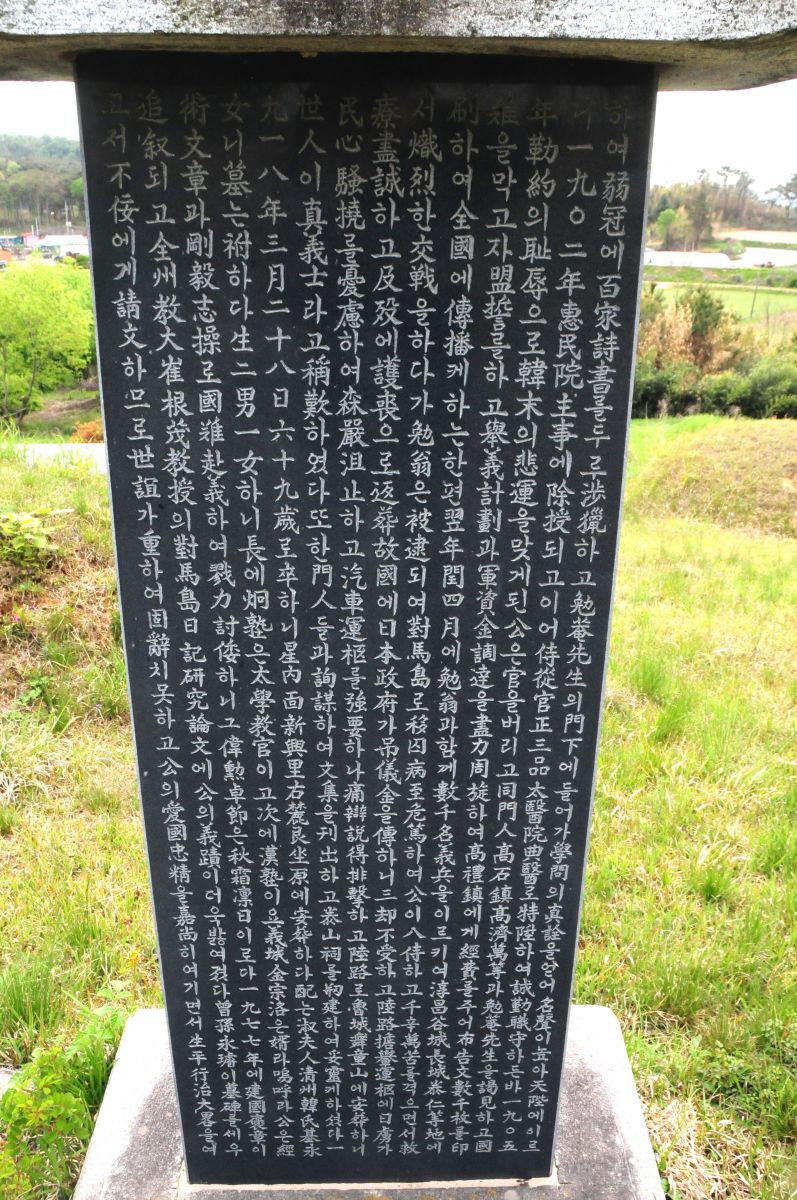 하여 弱冠에 百家詩書를 두루 涉獵하고 勉菴先生의 門下에 들어가 學問의 真詮을 얻어 名聲이 높아 天陛에 이르
니 一九〇二年 惠民院 主事에 除授되고 이어 侍從官 正三品 太醫院 典醫로 特陞하여 誠勤職守하든바 一九〇五
年 勒約의 耻辱으로 韓末의 悲運을 맞게된 公은 官을 버리고 同門人 高石鎮 高濟萬 等과 勉菴先生을 謁見하고 國
難을 막고자 盟誓를 하고 擧義計劃과 軍資金調達을 盡力周旋하여 高禮鎮에게 經費를 주어 布告文 數千枚를 印
刷하여 全國에 傳播케 하는 한편 翌年 閏四月에 勉翁과 함께 數千名 義兵을 이르키여 淳昌 谷城 長城 泰仁 等地에
서 熾烈한 交戰을 하다가 勉翁은 被逮되여 對馬島로 移囚 病至危篤하여 公이 入侍하고 千辛萬苦를 격으면서 救
療盡誠하고 及歿에 護喪으로 返葬故國에 日本政府가 吊儀金을 傳하니 三却不受하고 陸路搪轝運柩에 日虜가
民心騷撓를 憂慮하여 森嚴沮止하고 汽車運柩를 強要하나 痛辯說得排擊하고 陸路로 魯城 舞童山에 安葬하니
世人이 真義士라고 稱歎하였다 또한 門人들과 詢謀하여 文集을 刊出하고 泰山祠를 刱建하여 妥靈케 하섰다 一
九一八年 三月 二十八日 六十九歲로 卒하니 星內面 新興里 右麓 艮坐原에 安葬하다 配는 淑夫人 清州韓氏 基永
女니 墓는 祔하다 生二男一女하니 長에 炯塾은 太學教官이고 次에 漢塾이요 義城 金宗洛은 婿라 嗚呼라 公은 經
術文章과 剛毅志操로 國難赴義하여 戮力討倭하니 그 偉勳卓節은 秋霜凛日이로다 一九七七年에 建國褒章이
追叙되고 全州教大 崔根茂教授의 對馬島日記 研究論文에 公의 義蹟이 더욱 밝여졌다 曾孫 永 이 墓碑를 세우
고저 不佞에게 請文하므로 世誼가 重하여 固辭치 못하고 公의 愛國忠精을 嘉尚히 여기면서 生平行治大畧을 여